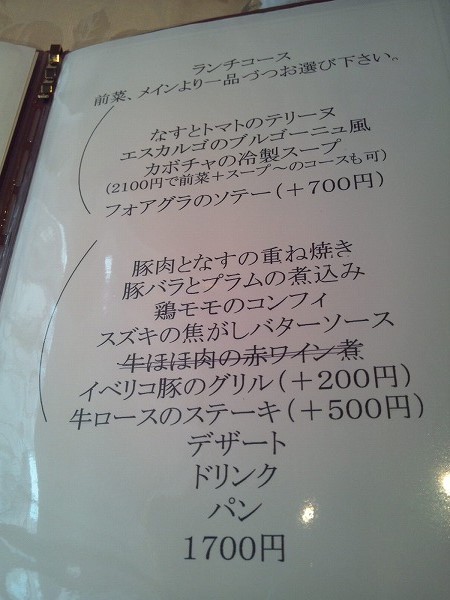 ランチコース
前菜、メインより一品づつお選び下さい。
なすとトマトのテリーヌ
エスカルゴのブルゴーニュ風
カボチャの冷製スープ
(2100円で前菜+スープ~のコースも可)
フォアグラのソテー(+700円)
豚肉となすの重ね焼き
豚バラとプラムの煮込み
鶏モモのコンフィ
スズキの焦がしバターソース
牛ほほ肉の赤ワイン煮
イベリコ豚のグリル(+200円)
牛ロースのステーキ(+500円)
デザート
ドリンク
パン
1700円